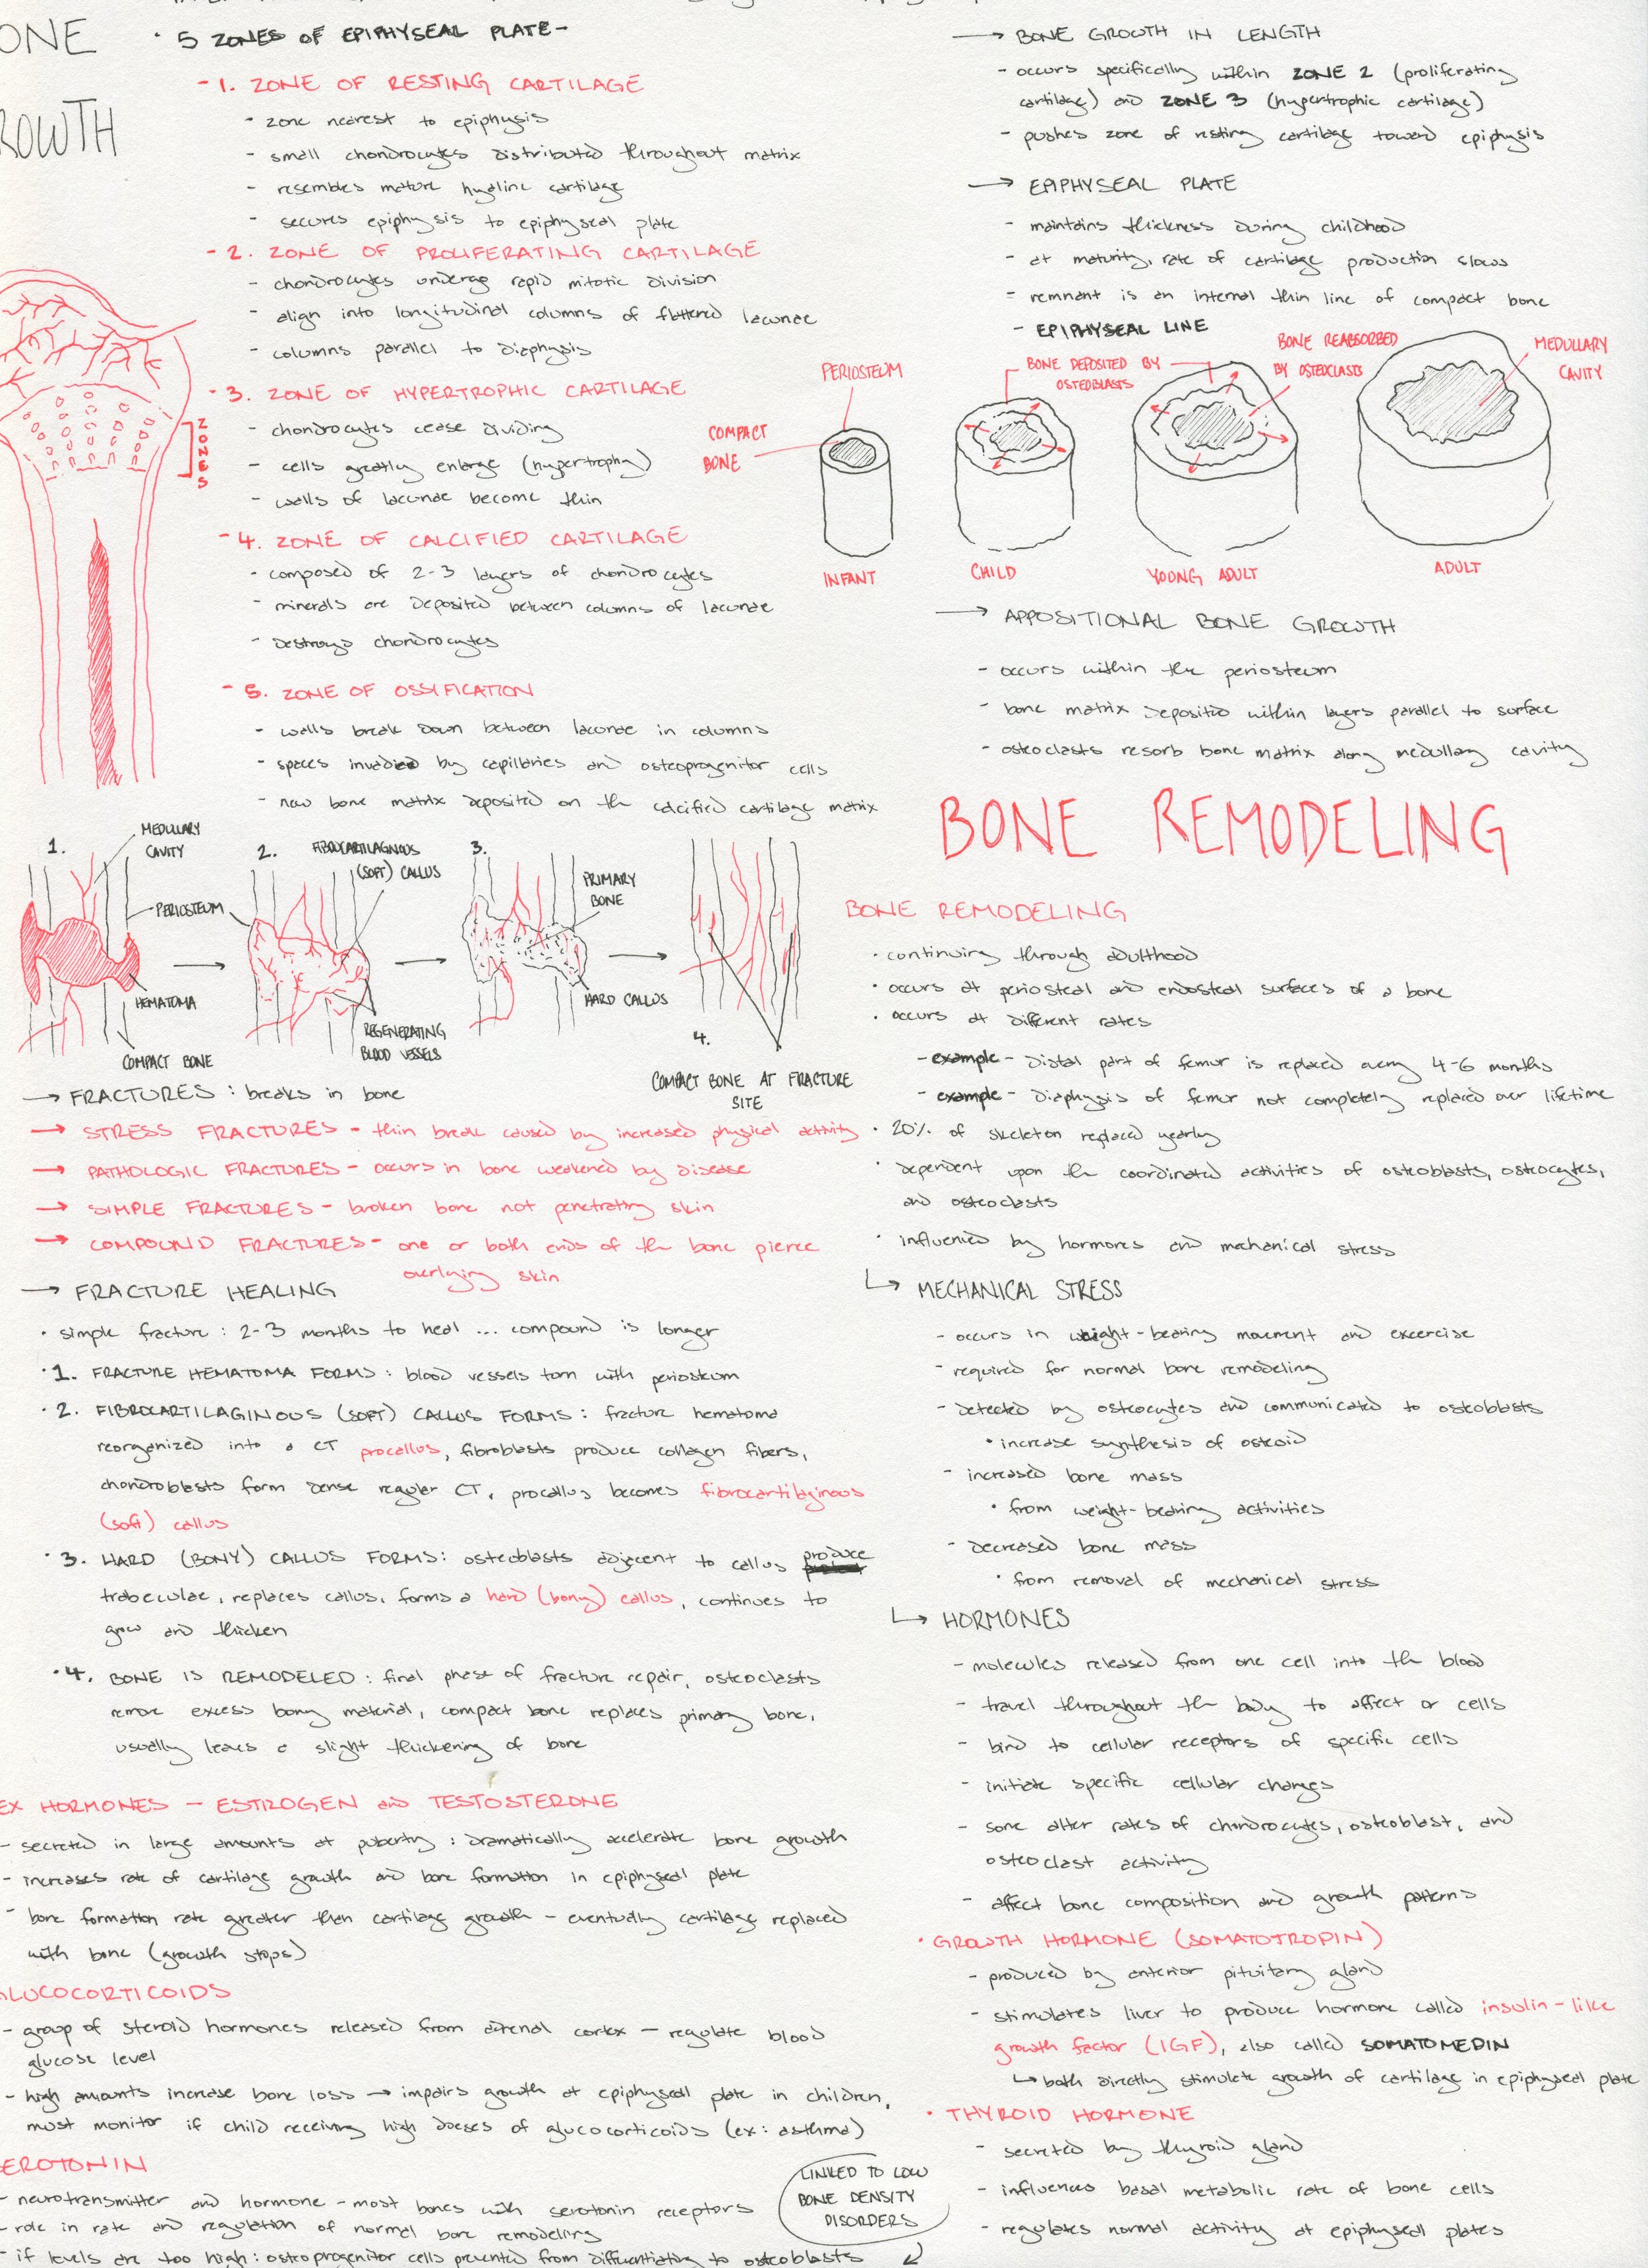 ONE
ROWTH
· 5 ZONES OF EPIPHYSEAL PLATE -
- 1. ZONE OF RESTING CARTILAGE
- zone nearest to epiphysis
- small chondrocytes distributed throughout matrix
- resembles mature hyaline cartilage
- secures epiphysis to epiphyseal plate
- 2. ZONE OF PROLIFERATING CARTILAGE
- chondrocytes undergo rapid mitotic division
- align into longitudinal columns of flattened lacunae
- columns parallel to diaphysis
- 3. ZONE OF HYPERTROPHIC CARTILAGE
- chondrocytes cease dividing
- cells greatly enlarge (hypertrophy)
- walls of lacunae become thin
- 4. ZONE OF CALCIFIED CARTILAGE
- composed of 2-3 layers of chondrocytes
- minerals are deposited between columns of lacunae
- destroys chondrocytes
- 5. ZONE OF OSSIFICATION
- walls break down between lacunae in columns
- spaces invaded by capillaries and osteoprogenitor cells
- new bone matrix deposited on the calcified cartilage matrix
ZONES
1.
MEDULLARY
CAVITY
PERIOSTEUM
HEMATOMA
COMPACT BONE
2.
FIBROCARTILAGNOUS
(SOFT) CALLUS
REGENERATING
BLOOD VESSELS
3.
PRIMARY
BONE
HARD CALLUS
4.
COMPACT BONE AT FRACTURE
SITE
→ FRACTURES : breaks in bone
→ STRESS FRACTURES - thin break caused by increased physical activity
→ PATHOLOGIC FRACTURES - occurs in bone weakened by disease
→ SIMPLE FRACTURES - broken bone not penetrating skin
→ COMPOUND FRACTURES - one or both ends of the bone pierce
overlying skin
→ FRACTURE HEALING
· simple fracture : 2-3 months to heal ... compound is longer
· 1. FRACTURE HEMATOMA FORMS : blood vessels torn with periosteum
· 2. FIBROCARTILAGINOUS (SOFT) CALLUS FORMS : fracture hematoma
reorganized into a CT procallus, fibroblasts produce collagen fibers,
chondroblasts form dense regular CT, procallus becomes fibrocartilaginous
(soft) callus
· 3. HARD (BONY) CALLUS FORMS : osteoblasts adjacent to callus produce
trabeculae, replaces callus, forms a hard (bony) callus, continues to
grow and thicken
· 4. BONE IS REMODELED : final phase of fracture repair, osteoclasts
remove excess bony material, compact bone replaces primary bone,
usually leaves a slight thickening of bone
EX HORMONES - ESTROGEN and TESTOSTERONE
- secreted in large amounts at puberty : dramatically accelerate bone growth
- increases rate of cartilage growth and bone formation in epiphyseal plate
- bone formation rate greater than cartilage growth - eventually cartilage replaced
with bone (growth stops)
LUCOCORTICOIDS
- group of steroid hormones released from adrenal cortex - regulate blood
glucose level
- high amounts increase bone loss → impairs growth at epiphyseal plate in children,
must monitor if child receiving high doeses of glucocorticoids (ex: asthma)
EROTONIN
- neurotransmitter and hormone - most bones with serotonin receptors
- role in rate and regulation of normal bone remodeling
- if levels are too high : osteoprogenitor cells prevented from differentiating to osteoblasts
LINKED TO LOW
BONE DENSITY
DISORDERS
→ BONE GROWTH IN LENGTH
- occurs specifically within ZONE 2 (proliferating
cartilage) and ZONE 3 (hypertrophic cartilage)
- pushes zone of resting cartilage toward epiphysis
→ EPIPHYSEAL PLATE
- maintains thickness during childhood
- at maturity, rate of cartilage production slows
- remnant is an internal thin line of compact bone
- EPIPHYSEAL LINE
PERIOSTEUM
COMPACT
BONE
BONE DEPOSITED BY
OSTEOBLASTS
BONE REABSORBED
BY OSTEOCLASTS
MEDULLARY
CAVITY
INFANT
CHILD
YOONG ADULT
ADULT
→ APPOSITIONAL BONE GROWTH
- occurs within the periosteum
- bone matrix deposited within layers parallel to surface
- osteoclasts resorb bone matrix along medullary cavity
BONE REMODELING
BONE REMODELING
· continuing through adulthood
· occurs at periosteal and endosteal surfaces of a bone
· occurs at different rates
- example - distal part of femur is replaced every 4-6 months
- example - diaphysis of femur not completely replaced over lifetime
· 20% of skeleton replaced yearly
· dependent upon the coordinated activities of osteoblasts, osteocytes,
and osteoclasts
· influenced by hormones and mechanical stress
↳ MECHANICAL STRESS
- occurs in weight-bearing movement and excercise
- required for normal bone remodeling
- detected by osteocytes and communicated to osteoblasts
· increase synthesis of osteoid
- increased bone mass
· from weight-bearing activities
- decreased bone mass
· from removal of mechanical stress
↳ HORMONES
- molecules released from one cell into the blood
- travel throughout the body to affect or cells
- bind to cellular receptors of specific cells
- initiate specific cellular changes
- some alter rates of chondrocytes, osteoblast, and
osteoclast activity
- affect bone composition and growth patterns
· GROWTH HORMONE (SOMATOTROPIN)
- produced by anterior pituitary gland
- stimulates liver to produce hormone called insulin-like
growth factor (IGF), also called SOMATOMEDIN
↳ both directly stimulate growth of cartilage in epiphyseal plate
· THYROID HORMONE
- secreted by thyroid gland
- influences basal metabolic rate of bone cells
- regulates normal activity at epiphyseal plates